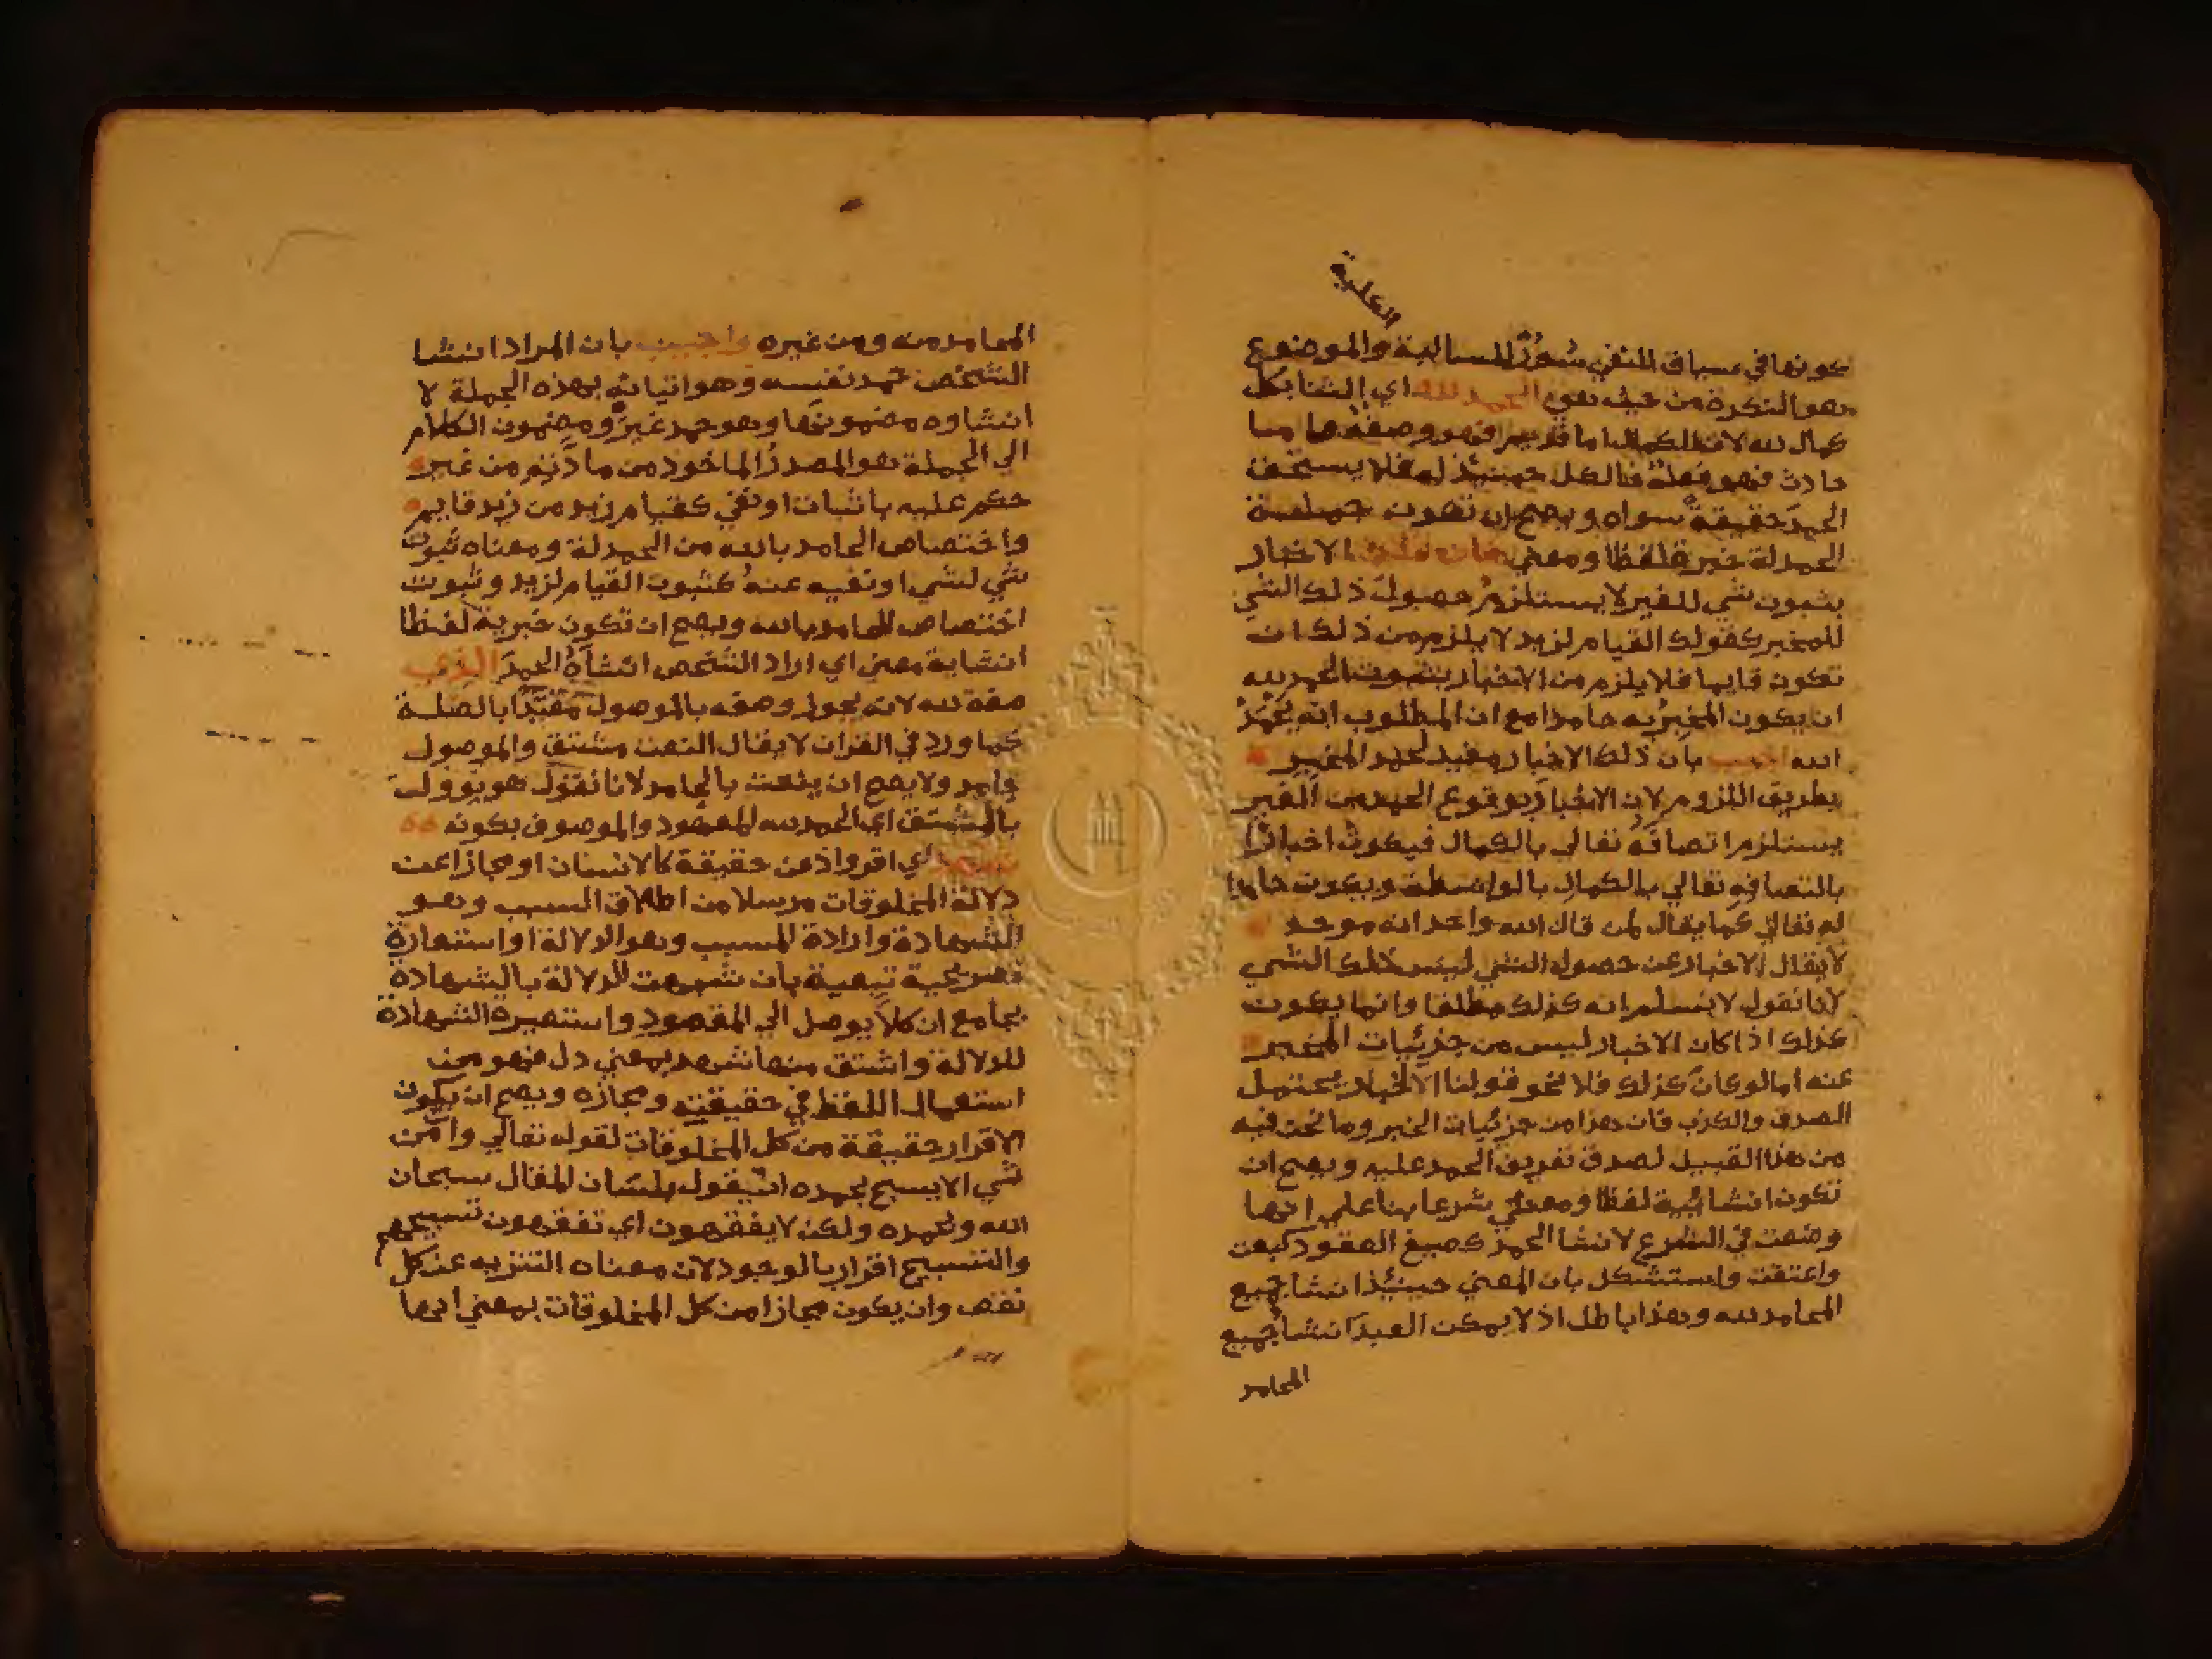 العلية
كونها في سياق النفي سُوْرٌ للسالبة والموضوع
هو النكرة من حيث هي الحمد لله اي الثنا بكل
كمال لله لان الكمال اما قديم فهو وصفه واما
حادث فهو فعله فالكل حينيذ له فلا يستحق
الحمدَ حقيقةً سواه ويصح ان تكون جملة
الحمدلة خبرية لفظا ومعني فان قلت الاخبار
بثبوت شي للغير لا يستلزم حصول ذلك الشي
للمخبر كقولك القيام لزيد لا يلزم من ذلك ان
تكون قايما فلا يلزم من الاخبار بثبوت الحمد لله
ان يكون المخبِرُ به حامدا مع ان المطلوب انه يَحْمَدُ
الله اجيب بان ذلك الاخبار مفيد لحمد المخبر
بطريق اللزوم لان الاخبار بوقوع الحمد من الغير
يستلزم اتصافَهُ تعالي بالكمال فيكون اخبارًا
باتصافِهِ تعالي بالكمال بالواسطة ويكون حامدا
له تعالي كما يقال لمن قال الله واحد انه موحد
لا يقال الاخبار عن حصول الشي ليس كذلك الشي
لانا نقول لا نسلم انه كذلك مطلقا وانما يكون
كذلك اذا كان الاخبار ليس من جزئيات المخبر
عنه اما لو كان كذلك فلا نحو قولنا الاخبار يحتمل
الصدق والكذب فان هذا من جزئيات الخبر وما نحن فيه
من هذا القبيل لصدق تعريف الحمد عليه ويصح ان
تكون انشائية لفظا ومعني شرعا بنا علي انها
وضعت في الشرع لانشا الحمد كصيغ العقود كبعت
واعتقت واستشكل بان المعني حينئذ انشا جميع
المحامد لله وهذا باطل اذ لا يمكن العبدَ انشا جميع
المحامد
المحامد منه ومن غيره واجيب بان المراد انشا
الشخص حمد نفسه وهو اتيانه بهذه الجملة لا
انشاوه مضمونها وهو حمد غيره ومضمون الكلام
الي الجملة هو المصدرُ الماخوذ من مادته من غير
حكم عليه باثبات او نفي كقيام زيد من زيد قايم
واختصاص الحامد بالله من الحمدلة ومعناه ثبوت
شي لشي او نفيه عنه كثبوت القيام لزيد وثبوت
اختصاص المحامد بالله ويصح ان تكون خبرية لفظا
انشاية معني اي اراد الشخص انشآءَ الحمدَ الذي
صفة لله لانه يجوز وصفه بالموصول مقيّدًا بالصّلة
كما ورد في القران لا يقال النعت مشتق والموصول
جامد ولا يصح ان ينعت بالجامد لانا نقول هو يوول
بالمشتق اي الحمد لله المعهود والموصوف بكونه
شهد اي اقر واذعن حقيقة كالانسان او مجازا عن
دلالة المخلوقات مرسلا من اطلاق السبب وهو
الشهادة وارادة المسبب وهو الدلالة او استعارة
تصريحية تبعية بان شبهت الدلالة بالشهادة
بجامع ان كلاً يوصل الي المقصود واستعيرة الشهادة
للدلالة واشتق منها شهد بمعني دل فهو من
استعمال اللفظ في حقيقته ومجازه ويصح ان يكون
الاقرار حقيقة من كل المخلوقات لقوله تعالي وان من
شي الا يسبح بحمده اي يقول بلسان المقال سبحان
الله وبحمده ولكن لا يفقهون اي تفقهون تسبيحهم
والتسبيح اقرار بالوجود لان معناه التنزيه عن كل
نقص وان يكون مجازا من كل المخلوقات بمعني انها